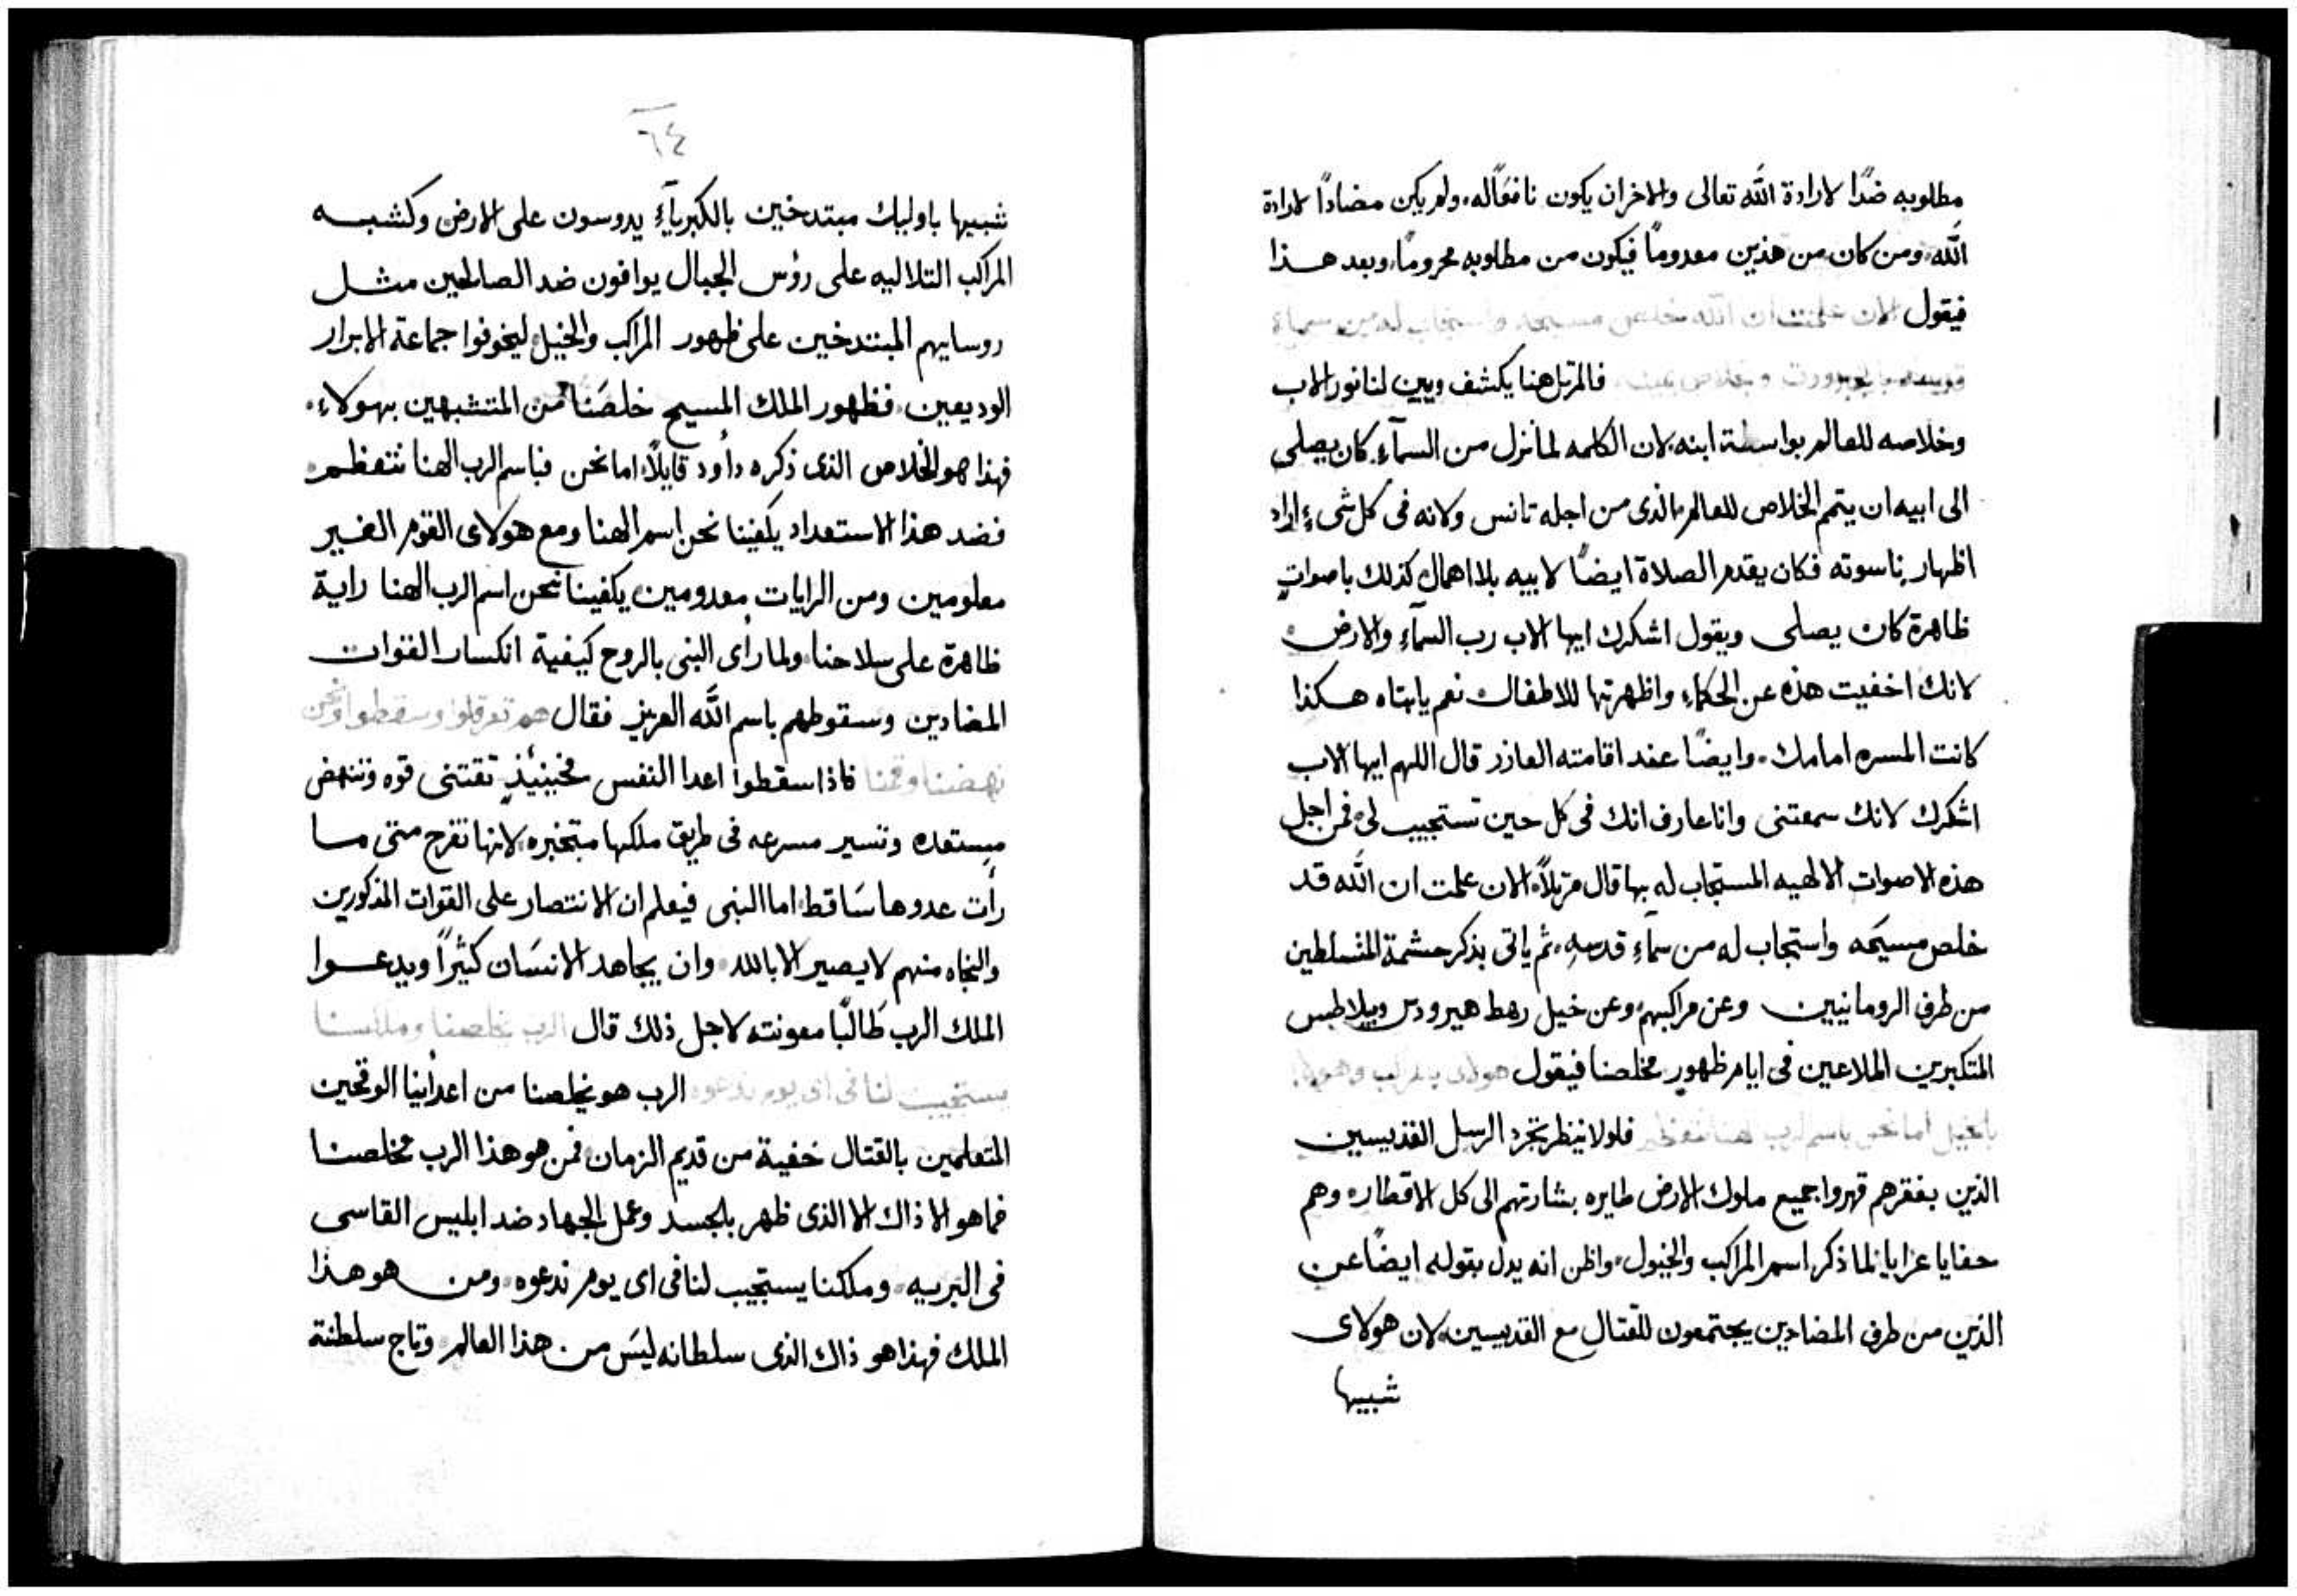 مطلوبه ضدًا لارادة الله تعالى والاخر ان يكون نافعًا له، ولم يكن مضادًا لارادة
الله، ومن كان من هذين معدومًا فيكون من مطلوبه محرومًا، وبعد هذا
فيقول الان علمت ان الله خلص مسيحه واستجاب له من سماء
قدسه بالجبروت وخلاص يمينه، فالمرتل هنا يكشف ويبين لنا نور الاب
وخلاصه للعالم بواسطة ابنه، لان الكلمه لما نزل من السمآء كان يصلى
الى ابيه ان يتمم الخلاص للعالم الذى من اجله تانس ولانه فى كل شىء اراد
اظهار ناسوته فكان يقدم الصلاة ايضًا لابيه بلا اهمال كذلك باصواتٍ
ظاهرة كان يصلى ويقول اشكرك ايها الاب رب السمآء والارض
لانك اخفيت هذه عن الحكماء واظهرتها للاطفال نعم يا ابتاه هكذا
كانت المسره امامك، وايضًا عند اقامته العازر قال اللهم ايها الاب
اشكرك لانك سمعتنى وانا عارف انك فى كل حين تستجيب لى، فمن اجل
هذه الاصوات الالهيه المستجاب له بها قال مرتلاً، الان علمت ان الله قد
خلص مسيحه واستجاب له من سمآء قدسهِ، ثم ياتى بذكر حشمة المتسلطين
من طرف الرومانيين وعن مراكبهم وعن خيل رهط هيرودس وبيلاطس
المتكبرين الملاعين فى ايام ظهور مخلصنا فيقول هولاى بمراكب وهولاى
بالخيل اما نحن باسم الرب الهنا نتعظم فلولا ينظر تجرد الرسل القديسين
الذين بفقرهم قهروا جميع ملوك الارض طايره بشارتهم الى كل الاقطاره وهم
حفايا عرايا لما ذكر اسم المراكب والخيول، واظن انه يدل بقوله ايضًا عن
الذين من طرف المضادين يجتمعون للقتال مع القديسين، لان هولاى
شبيها
٦٤
شبيها باوليك مبتدخين بالكبريآء يدوسون على الارض وكشبه
المراكب التلاليه على رؤس الجبال يوافون ضد الصالحين مثل
روسايهم المبتدخين على ظهور المراكب والخيل، ليخوفوا جماعة الابرار
الوديعين، فظهور الملك المسيح خلصَنا من المتشبهين بهولاء،
فهذا هو الخلاص الذى ذكره داود قايلاً، اما نحن فباسم الرب الهنا نتعظم
فضد هذا الاستعداد يكفينا نحن اسم الهنا ومع هولاى القوم الغير
معلومين ومن الرايات معدومين يكفينا نحن اسم الرب الهنا راية
ظاهرة على سلاحنا، ولما رأى النبى بالروح كيفية انكسار القوات
المضادين وسقوطهم باسم الله العزيز فقال هم تعرقلوا وسقطوا ونحن
نهضنا وقمنا فاذا سقطوا اعدا النفس فحينيئذٍ تقتنى قوه وتنهض
مستعده وتسير مسرعه فى طريق ملكها متخبره، لانها تفرح متى ما
رأت عدوها سَاقط، اما النبى فيعلم ان الانتصار على القوات المذكورين
والنجاه منهم لا يصير الا بالله، وان يجاهد الانسَان كثيرًا ويدعوا
الملك الرب طَالبًا معونته لاجل ذلك قال الرب يخلصنا وملكنا
يستجيب لنا فى اى يوم ندعوه الرب هو يخلصنا من اعدأينا الوقحين
المتعلمين بالقتال خفية من قديم الزمان، فمن هو هذا الرب مخلصنا
فما هو الا ذاك الا الذى ظهر بالجسد وعمل الجهاد ضد ابليس القاسى
فى البريه، وملكنا يستجيب لنا فى اى يوم ندعوه، ومن هو هذا
الملك فهذا هو ذاك الذى سلطانه ليسَ من هذا العالم وتاج سلطنة